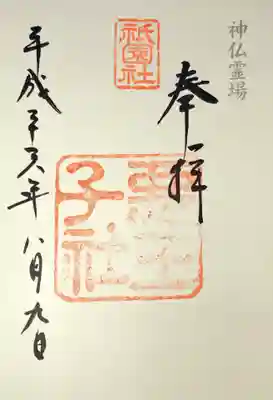 神仏霊場
奉拝
祇園社
惡王子社
平成廿六年八月九日